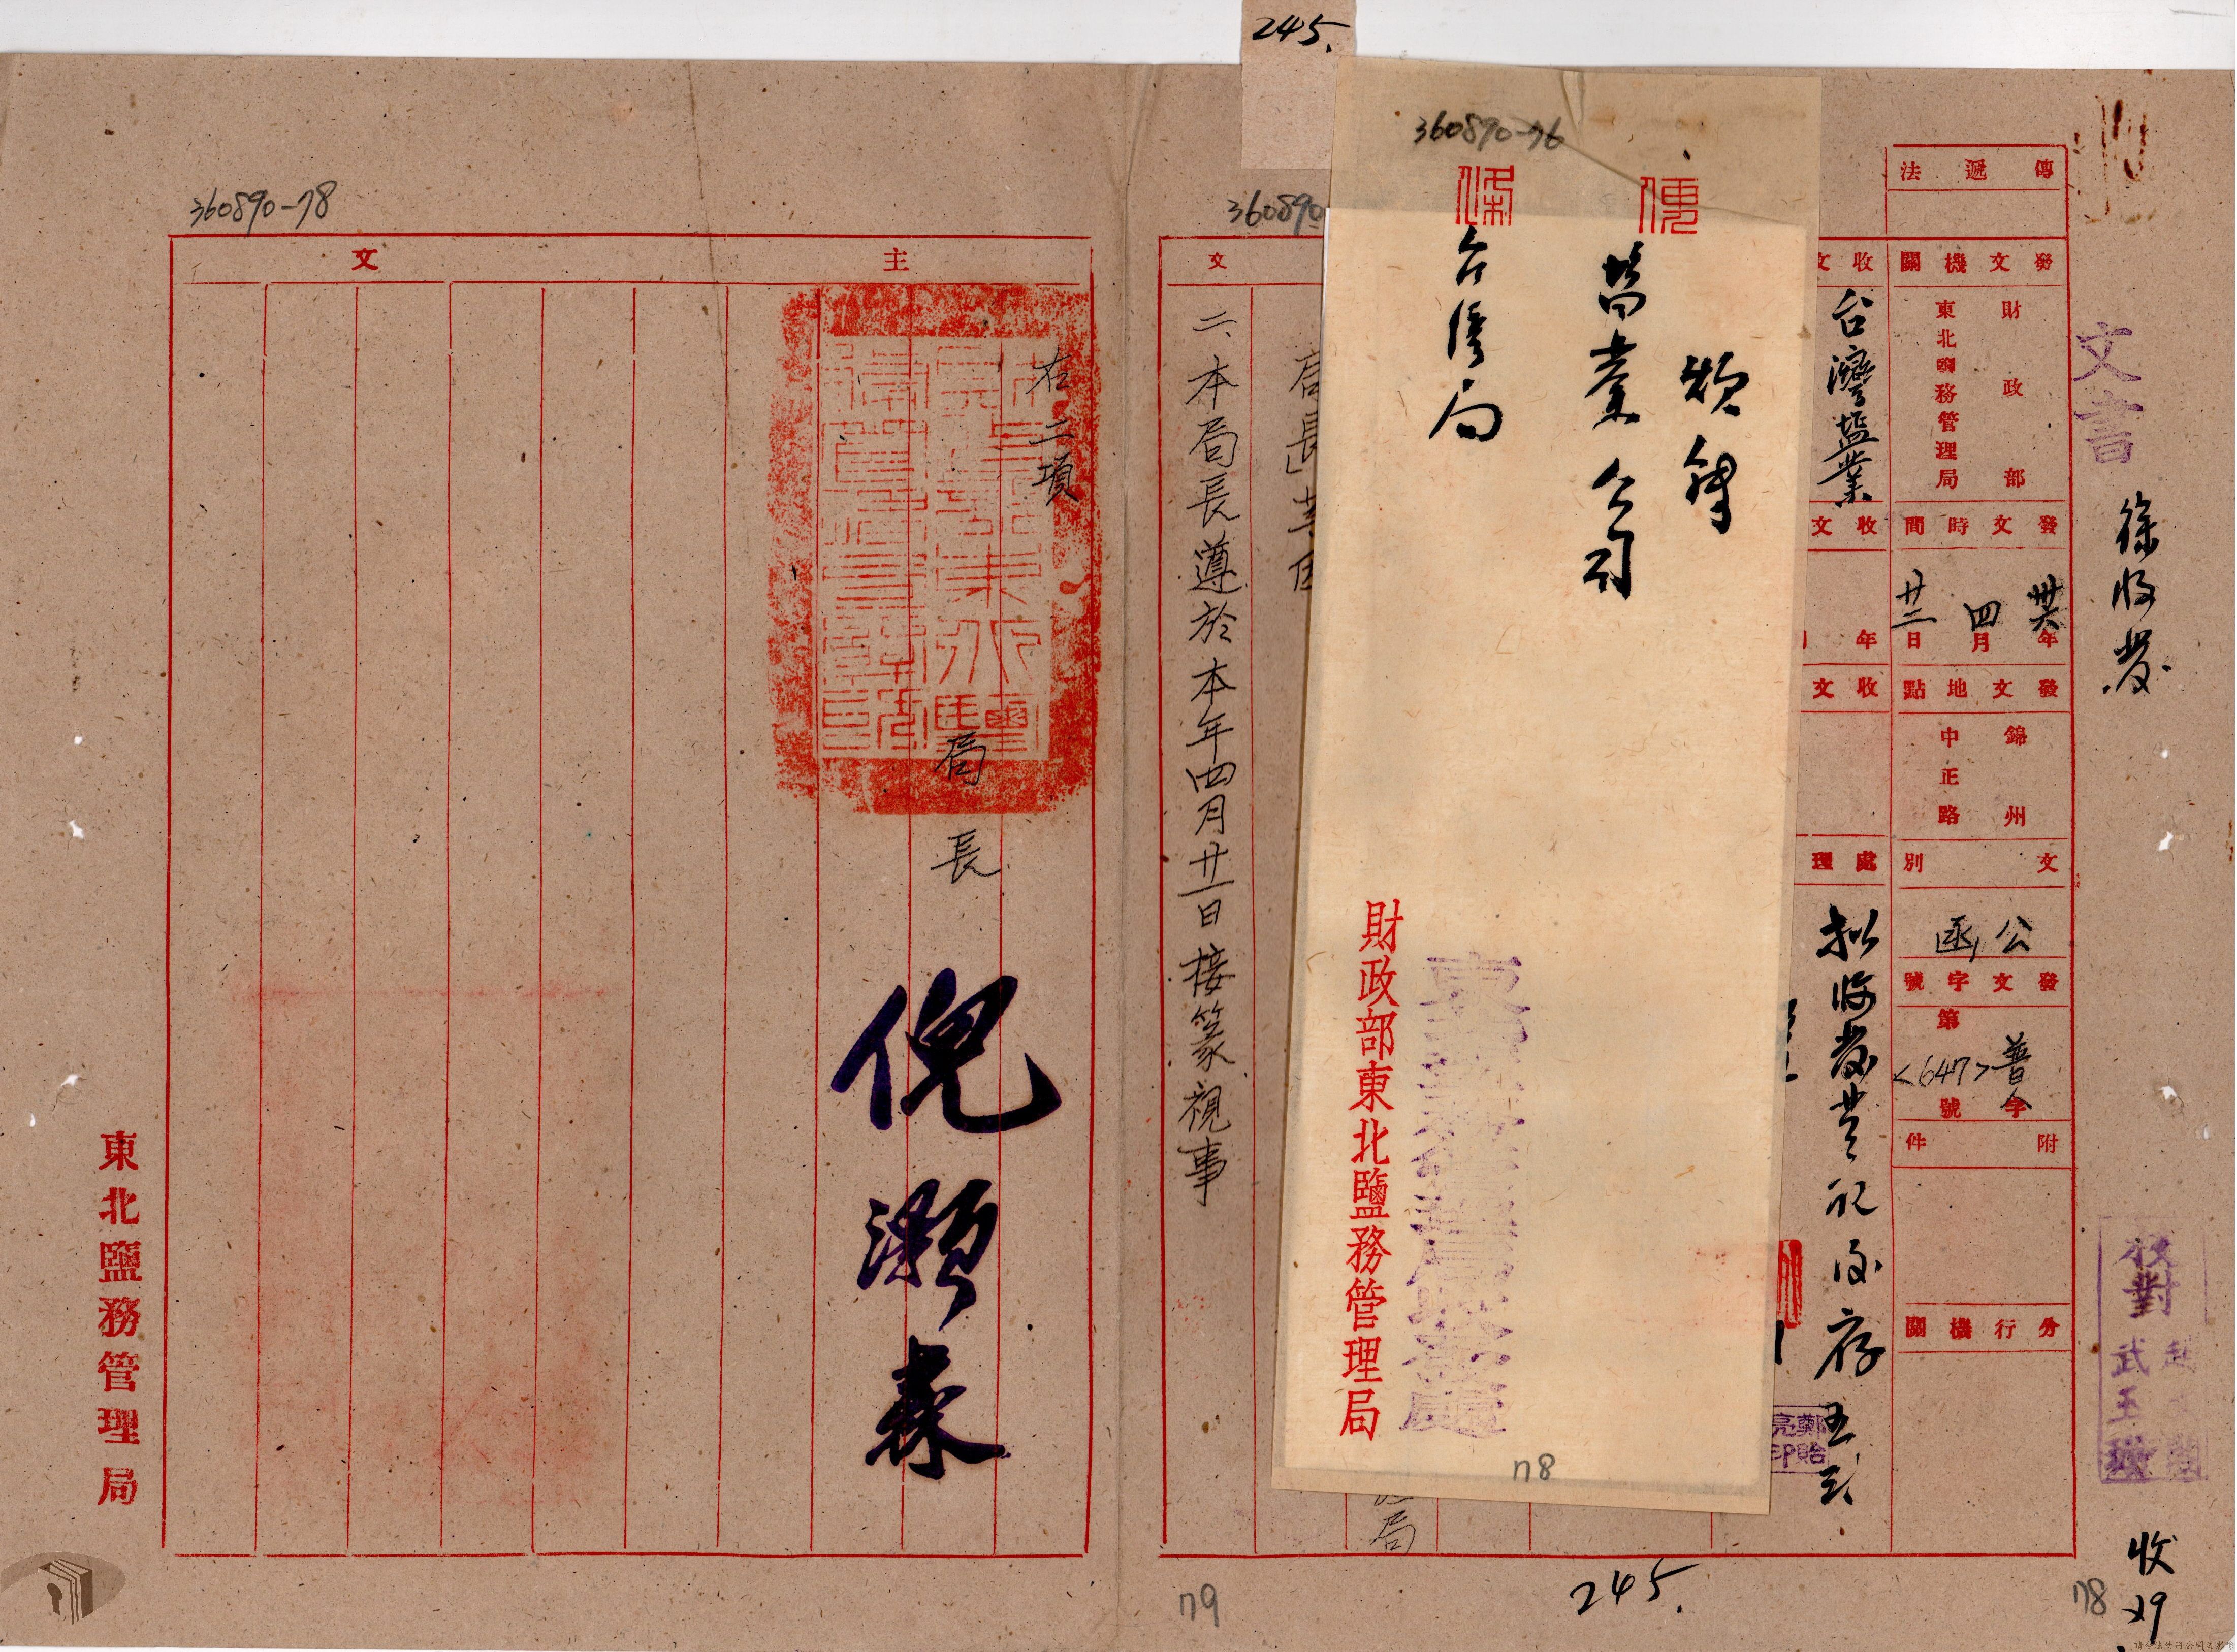 245.
傳遞法
發文機關
財政部
東北鹽務管理局
發文時間
卅六年
四月
廿二日
發文地點
錦州
中正路
文別
公函
發文字號
普人字
第<647>號
附件
分行機關
收文
台灣塩業
收文
年
收文
處理
擬收發登記後存
五
鄭貽亮印
文書
徐收發
校對
武玉
收
29
360890-76
便條
煩轉
營業公司
台灣局
財政部東北鹽務管理局
78
360890
文
局長
二、本局長遵於本年四月廿一日接篆視事
局
79
245.
78
360890-78
主文
右二項
局長
倪灝森
東北鹽務管理局